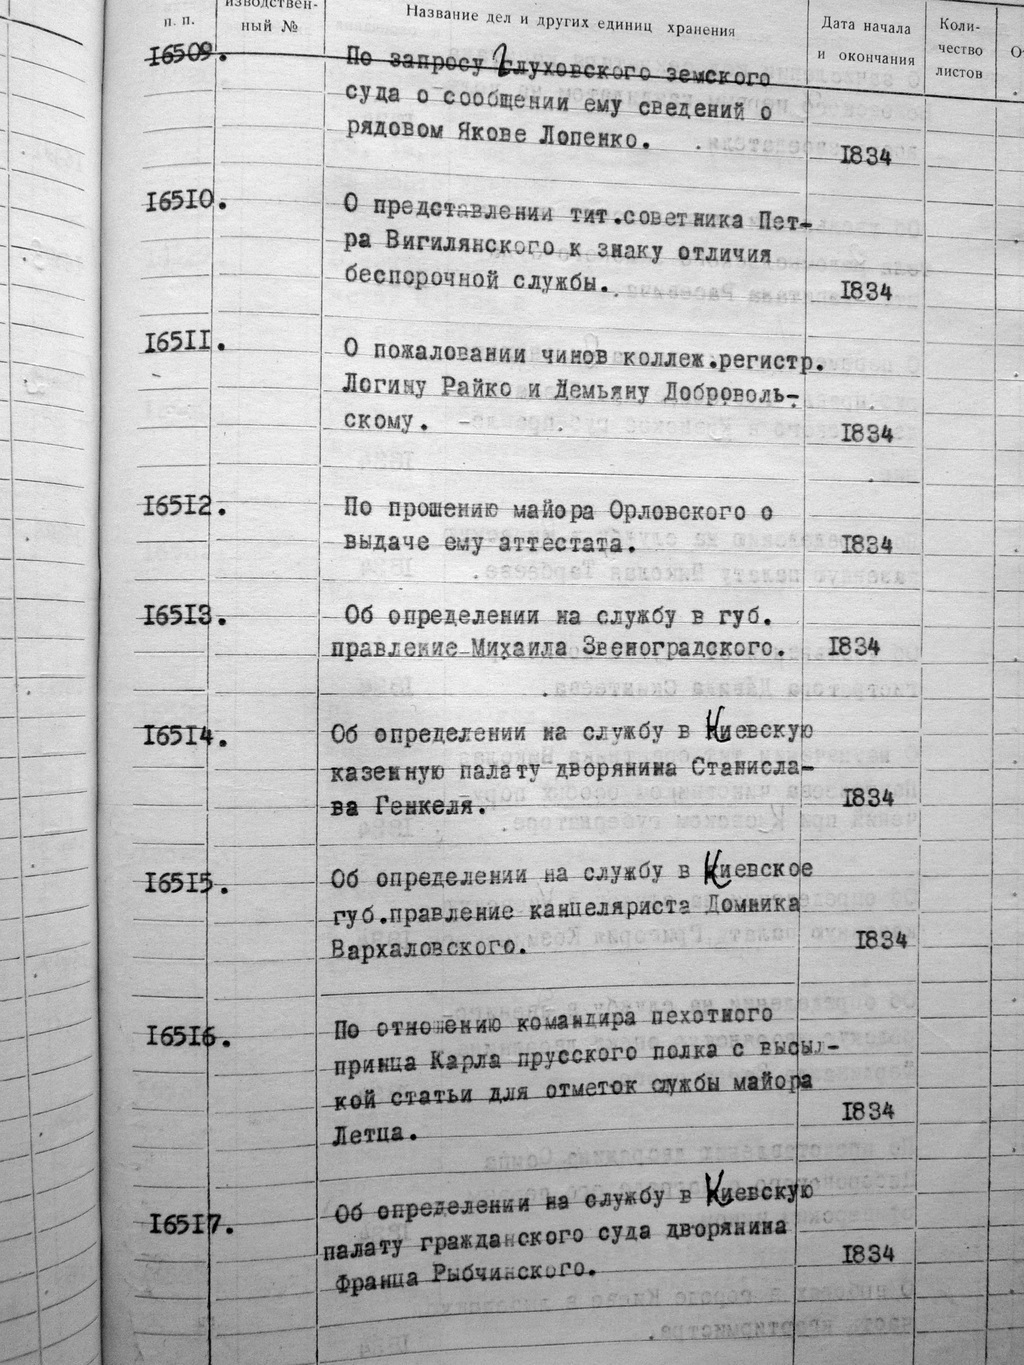 изводствен-
п. п.
ный №
Название дел и других единиц хранения
Дата начала
и окончания
Коли-
чество
листов
16509.
По запросу Глуховского земского
суда о сообщении ему сведений о
рядовом Якове Лопенко.
1834
16510.
О представлении тит.советника Пет-
ра Вигилянского к знаку отличия
беспорочной службы.
1834
16511.
О пожаловании чинов коллеж.регистр.
Логину Райко и Демьяну Доброволь-
скому.
1834
16512.
По прошению майора Орловского о
выдаче ему аттестата.
1834
16513.
Об определении на службу в губ.
правление Михаила Звеноградского.
1834
16514.
Об определении на службу в Киевскую
казенную палату дворянина Станисла-
ва Генкеля.
1834
16515.
Об определении на службу в Киевское
губ.правление канцеляриста Домника
Вархаловского.
1834
16516.
По отношению командира пехотного
принца Карла прусского полка с высыл-
кой статьи для отметок службы майора
Летца.
1834
16517.
Об определении на службу в Киевскую
палату гражданского суда дворянина
Франца Рыбчинского.
1834